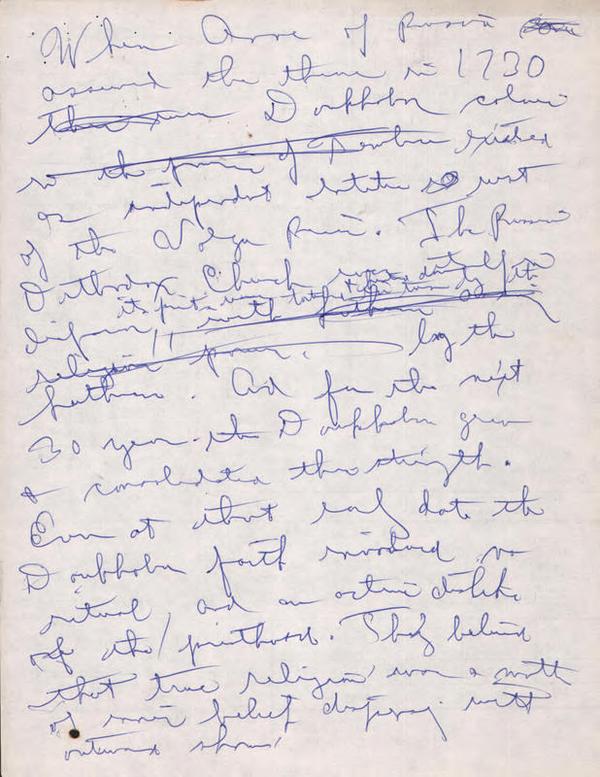 When Anne of Russia
assumed the throne in 1730
Doukhobor colonies
in the province of existed
as independent entities west
of the Volga River. The Russian
Orthodox Church was
its priests were
religious power. by the
And for the next
30 years the Doukhobor grew
& consolidated their strength.
Even at that early date the
Doukhobor faith involved no
ritual, and an active dislike
of the priesthood. They believed
that true religion was a matter
of inner belief with
outward show